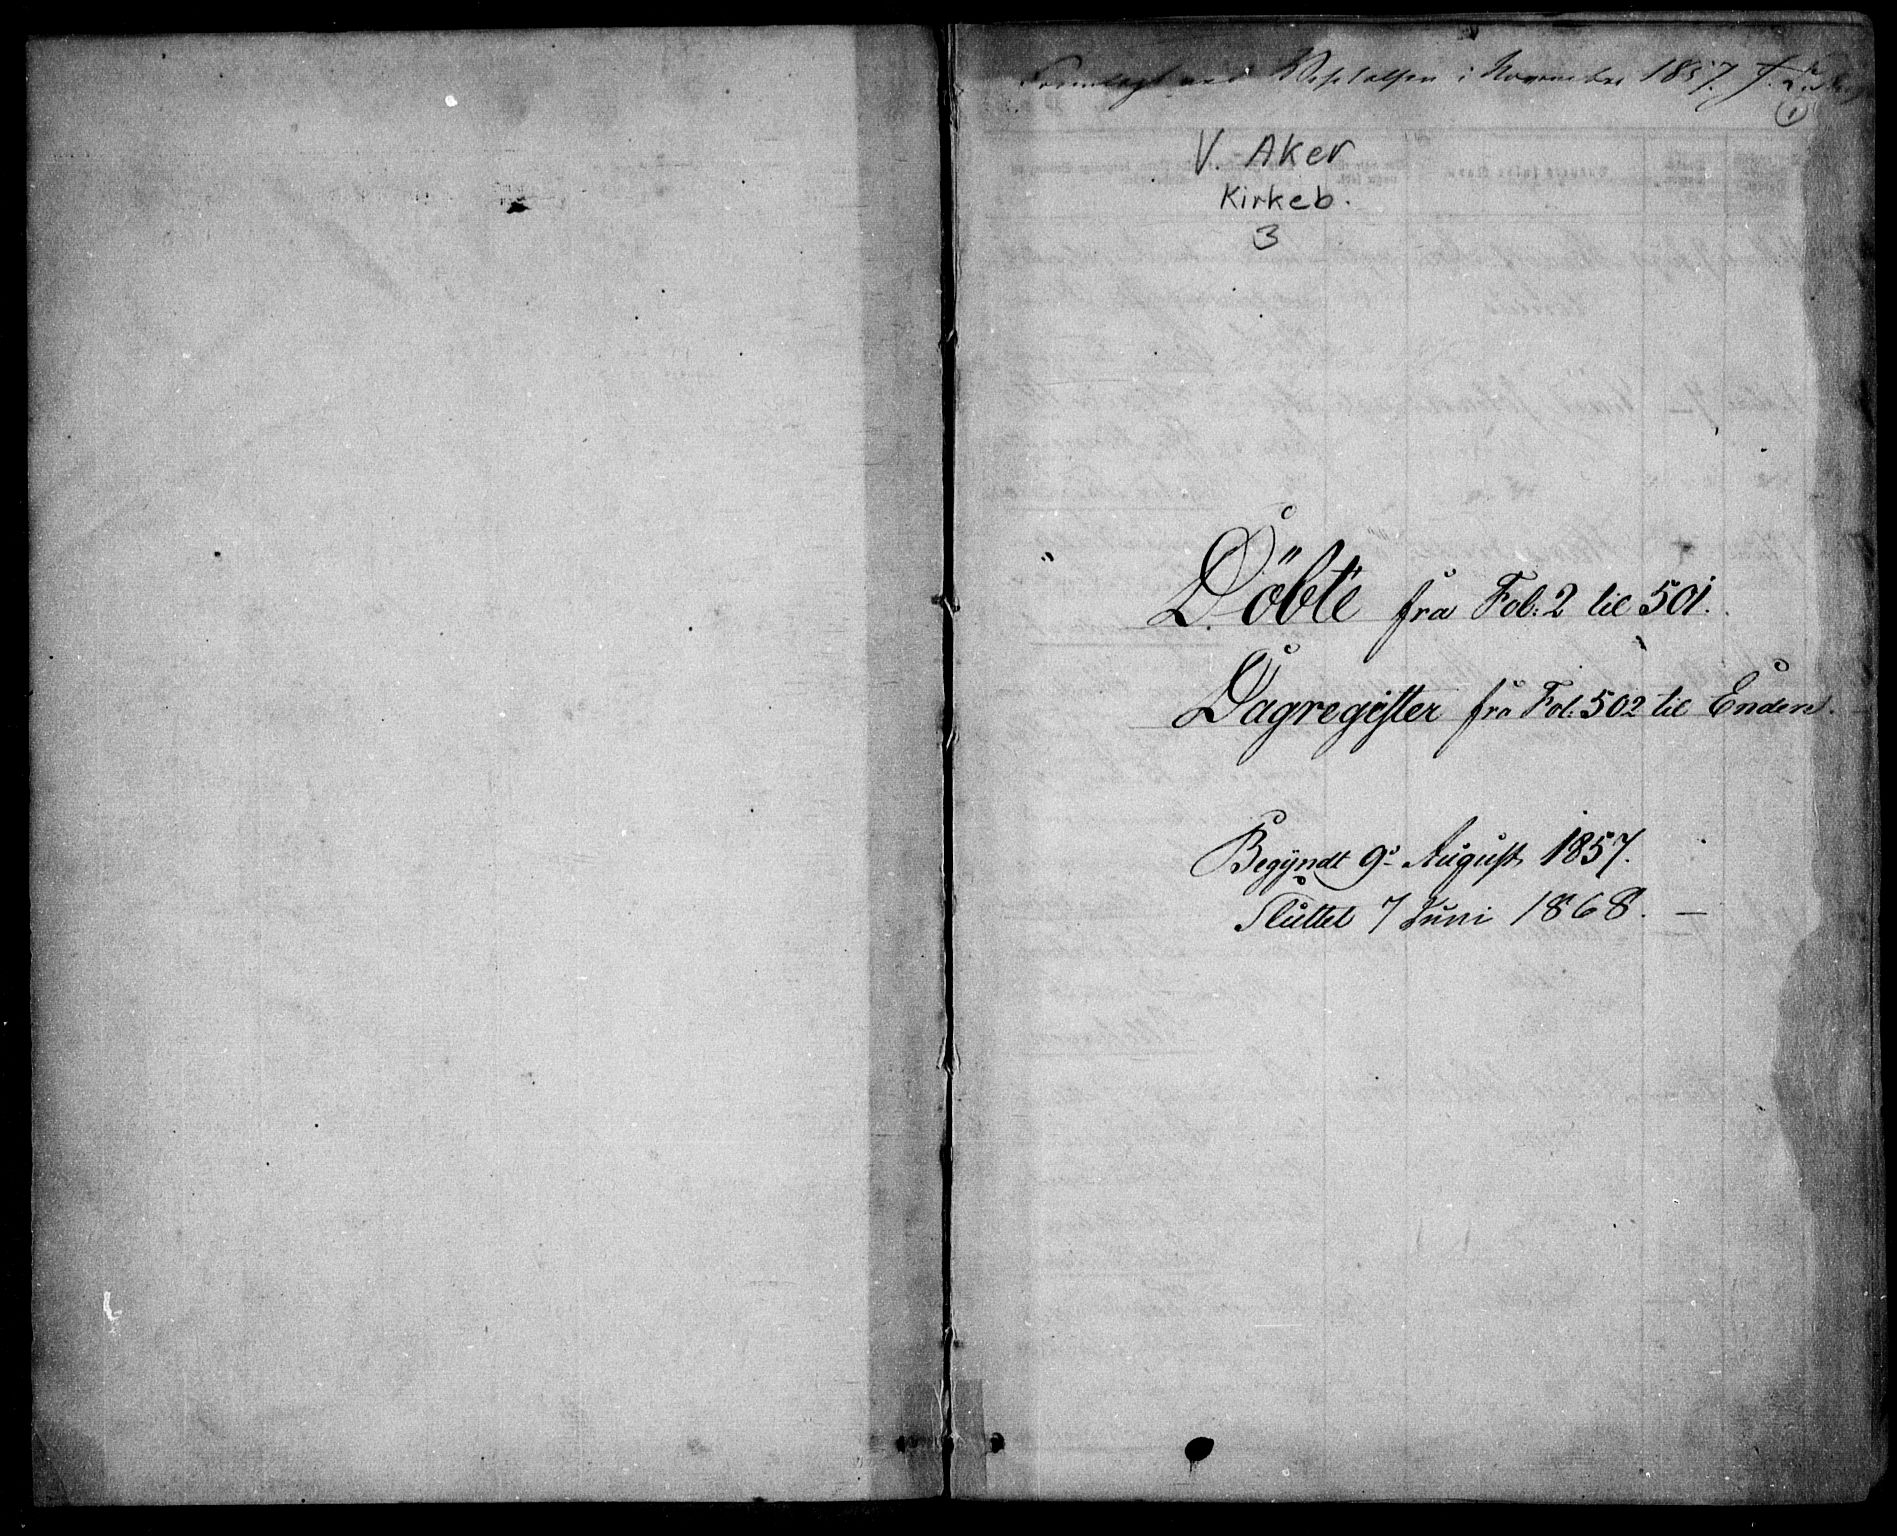 Fremlagt ved Visitatsen i November 1857.
1
V. Aker
Kirkeb.
3
Döbte fra Fol: 2 til 501.
Dagregister fra Fol: 502 til Enden.
Begyndt 9d August 1857.
Sluttet 7 Juni 1868. —